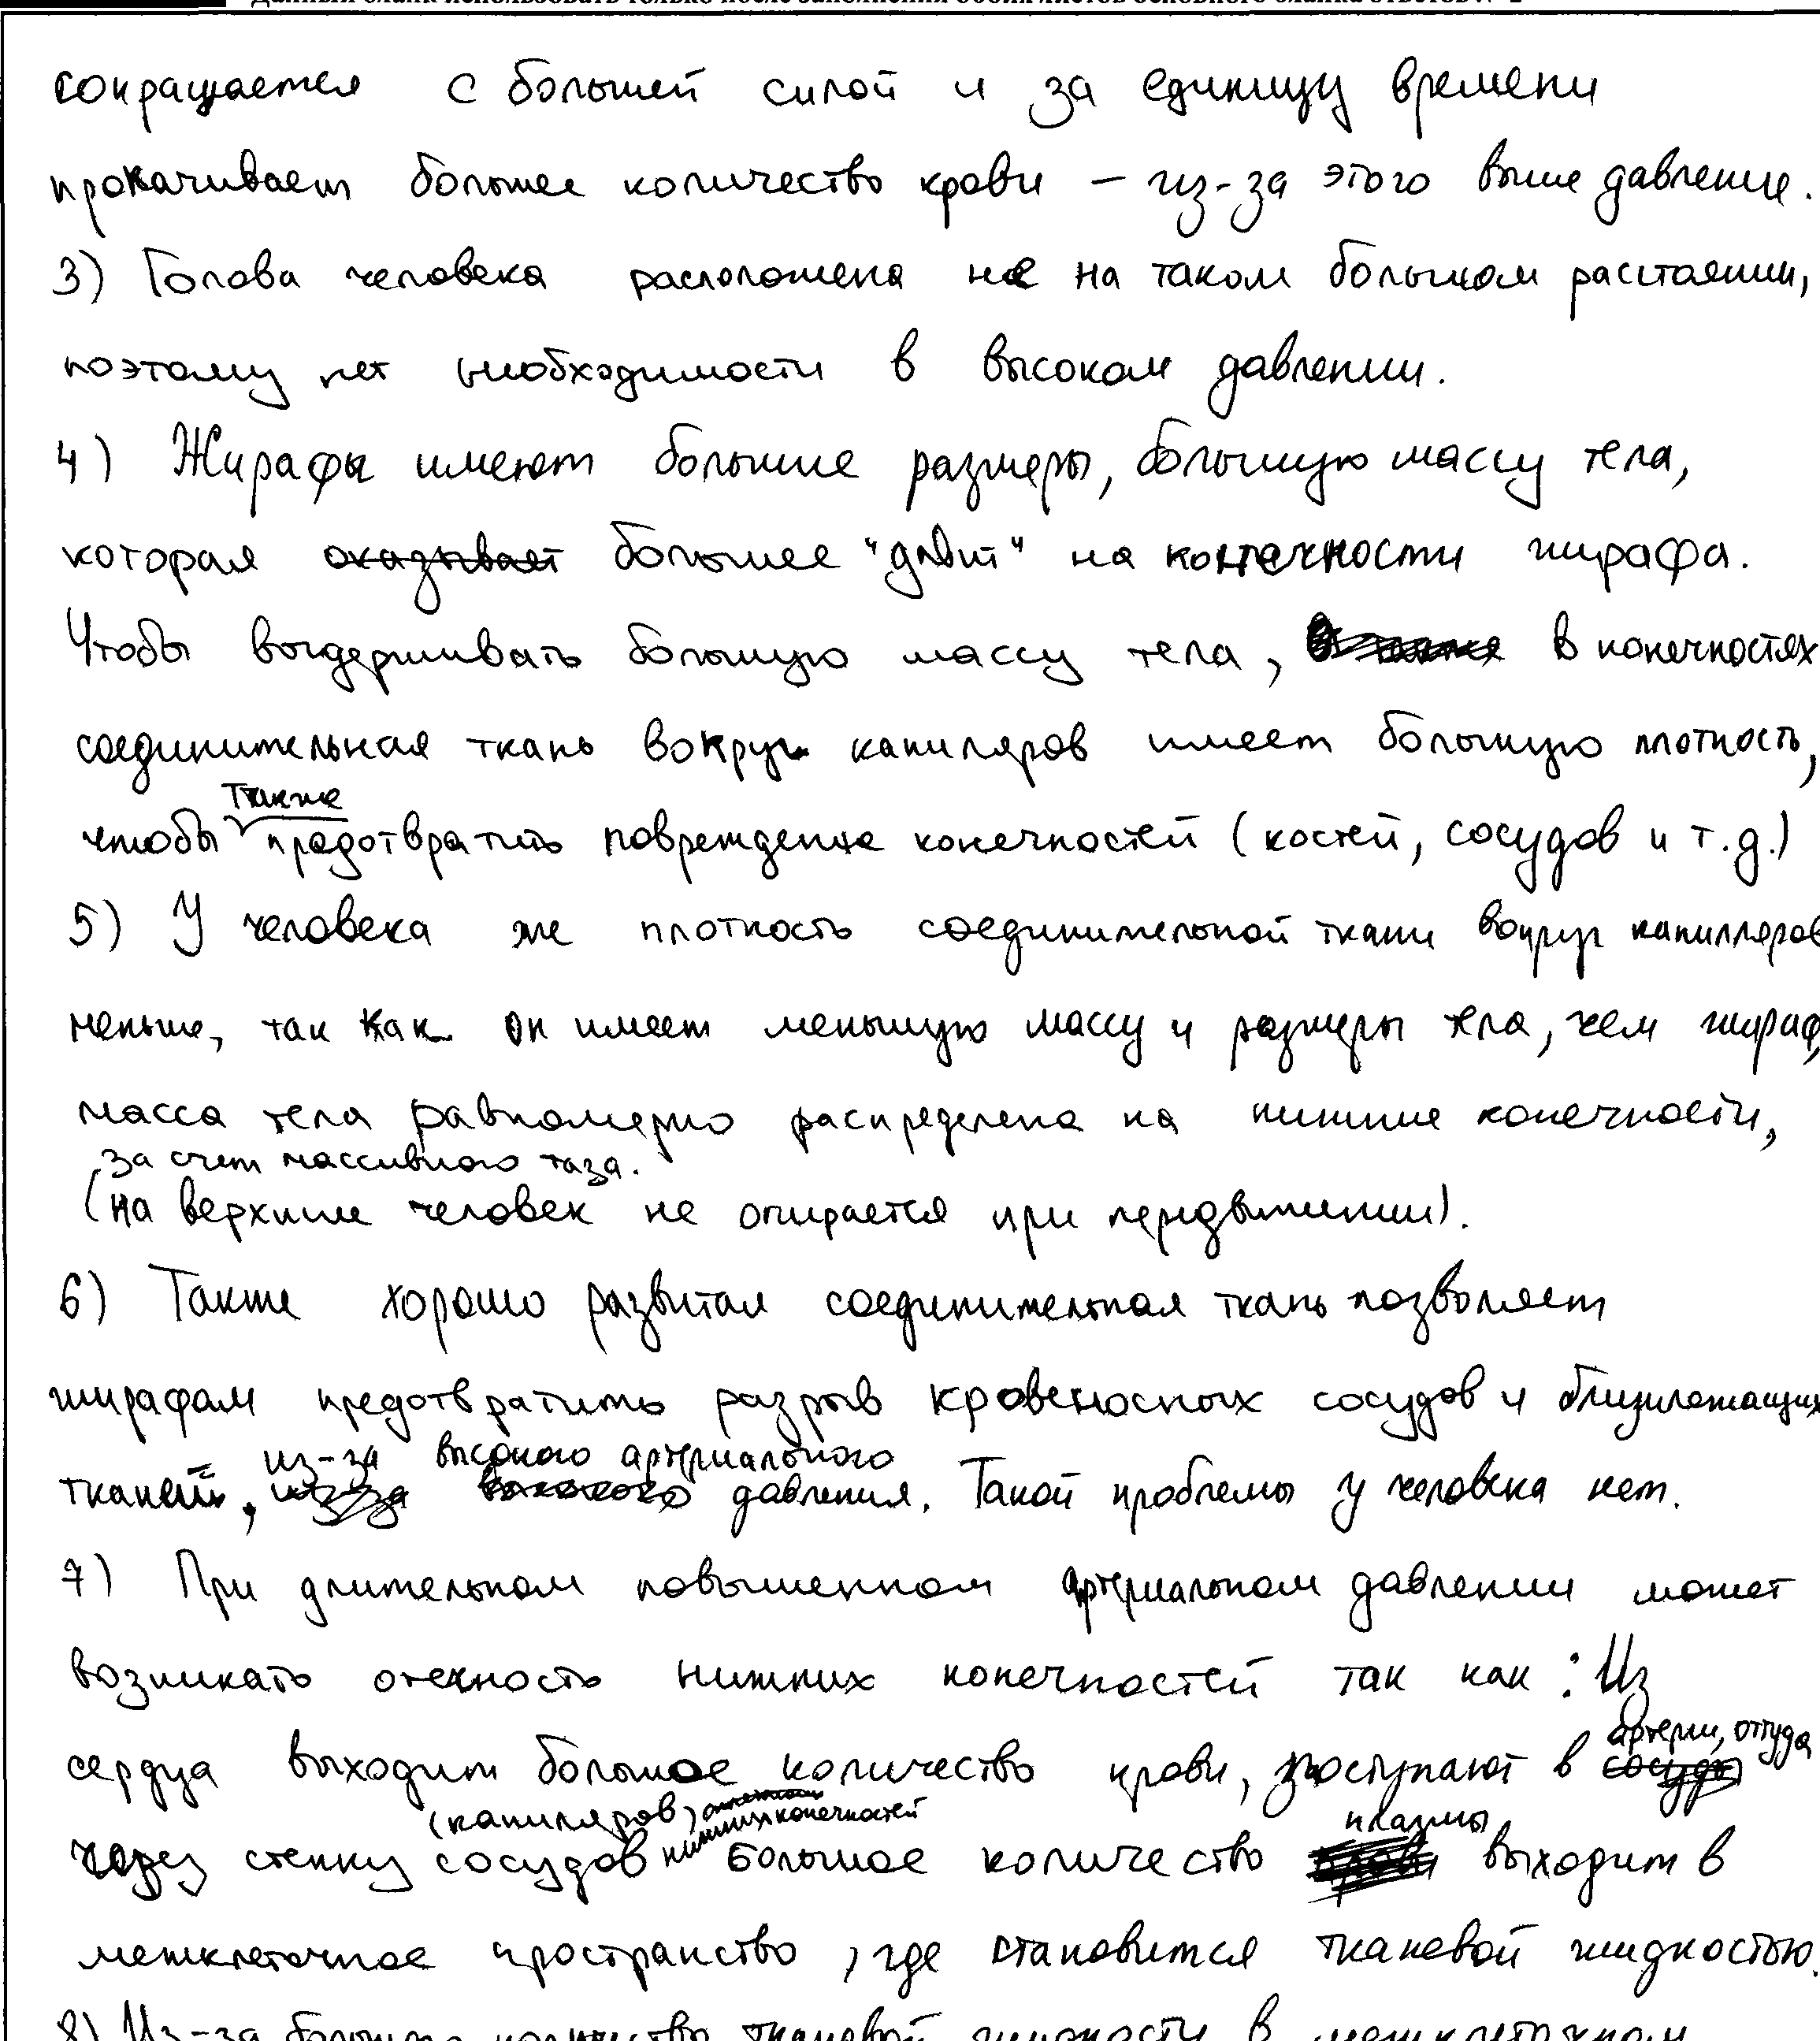 Данный бланк использовать только после заполнения обоих листов основного бланка ответов № 2
сокращается с большей силой и за единицу времени
прокачивает большее количество крови – из-за этого выше давление.
3) Голова человека расположена не на таком большом расстоянии,
поэтому нет необходимости в высоком давлении.
4) Жирафы имеют большие размеры, большую массу тела,
которая оказывает большее "давит" на конечности жирафа.
Чтобы выдерживать большую массу тела, в конечностях
соединительная ткань вокруг капиляров имеет большую плотность,
также
чтобы предотвратить повреждение конечностей (костей, сосудов и т.д.)
5) У человека же плотность соединительной ткани вокруг капилляров
меньше, так как он имеет меньшую массу и размеры тела, чем жираф,
масса тела равномерно распределена на нижние конечности,
за счет массивного таза.
(на верхние человек не опирается при передвижении).
6) Также хорошо развитая соединительная ткань позволяет
жирафам предотвратить разрыв кровеносных сосудов и близлежащих
из-за высокого артериального
тканей, давления. Такой проблемы у человека нет.
7) При длительном повышенном артериальном давлении может
возникать отечность нижних конечностей так как: Из
артерии, оттуда
сердца выходит большое количество крови, поступают в сосуды
(капиляров) нижних конечностей плазмы
через стенку сосудов большое количество выходит в
межклеточное пространство, где становится тканевой жидкостью.
8) Из-за большого количества тканевой жидкости в межклеточном